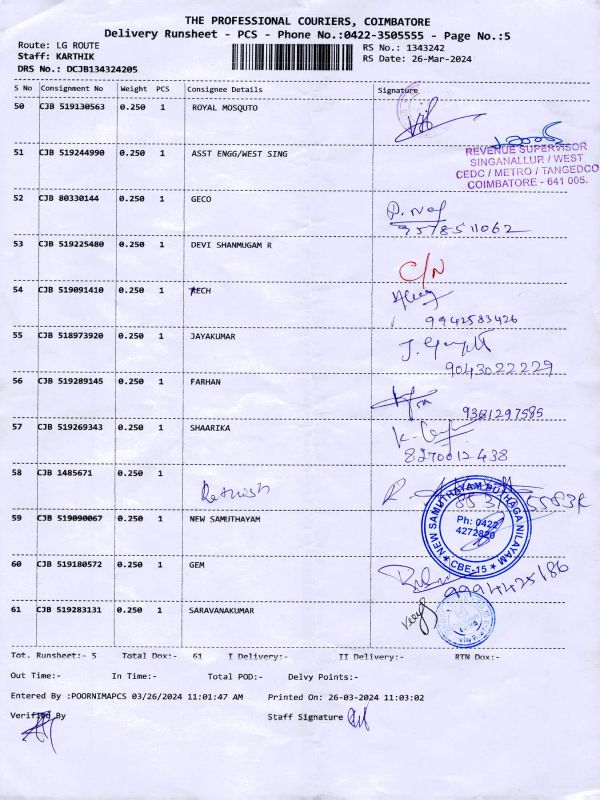 THE PROFESSIONAL COURIERS, COIMBATORE
Delivery Runsheet - PCS - Phone No.:0422-3505555 - Page No.:5
Route: LG ROUTE RS No.: 1343242
Staff: KARTHIK RS Date: 26-Mar-2024
DRS No.: DCJB134324205
S No Consignment No Weight PCS Consignee Details Signature
50 CJB 519130563 0.250 1 ROYAL MOSQUTO
51 CJB 519244990 0.250 1 ASST ENGG/WEST SING
REVENUE SUPERVISOR
SINGANALLUR / WEST
CEDC / METRO / TANGEDCO
COIMBATORE - 641 005.
52 CJB 80330144 0.250 1 GECO
9578511062
53 CJB 519225480 0.250 1 DEVI SHANMUGAM R
C/N
54 CJB 519091410 0.250 1 AECH
9942583426
55 CJB 518973920 0.250 1 JAYAKUMAR
9043022229
56 CJB 519289145 0.250 1 FARHAN
9361297585
57 CJB 519269343 0.250 1 SHAARIKA
8270012438
58 CJB 1485671 0.250 1
59 CJB 519090067 0.250 1 NEW SAMUTHAYAM
NEW SAMUTHAYAM PUTHAGA NILAYAM
Ph: 0422
4272820
CBE-15
60 CJB 519180572 0.250 1 GEM
9994425186
61 CJB 519283131 0.250 1 SARAVANAKUMAR
Tot. Runsheet:- 5 Total Dox:- 61 I Delivery:- II Delivery:- RTN Dox:-
Out Time:- In Time:- Total POD:- Delvy Points:-
Entered By :POORNIMAPCS 03/26/2024 11:01:47 AM Printed On: 26-03-2024 11:03:02
Verified By Staff Signature